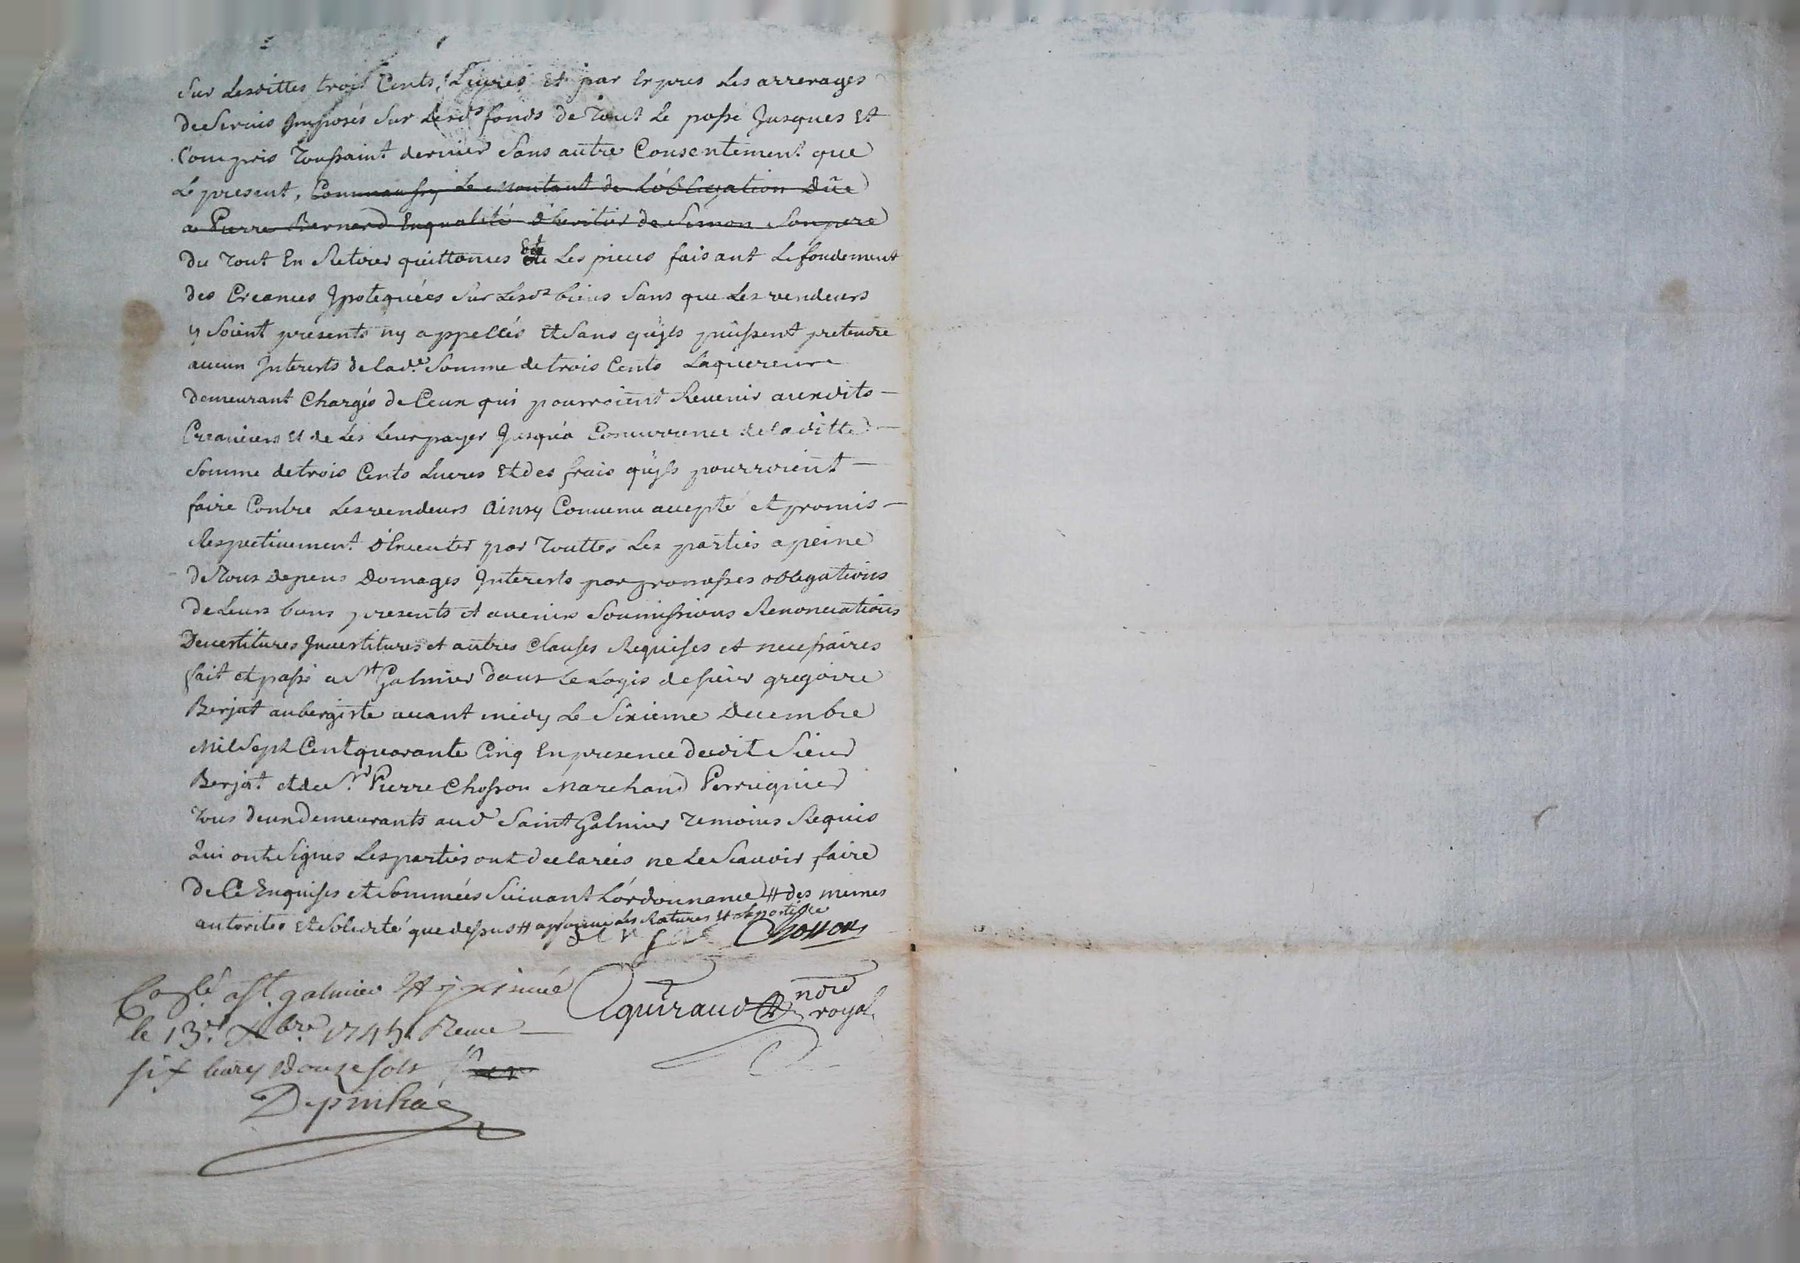 Sur Lesdittes trois Cents Livres Et par Expres Les arrerages
De Servis Imposés Sur Lesds fonds de Tout Le passé Jusques Et
Compris Toussaint dernier Sans autre Consentement que
Le present, Comme aussy Le montant de L'obligation Düe
a Pierre Bernard Enqualité d'heritier de Simon Son pere
Du Tout En Retirer quittances Et Les pieces faisant Le fondement
des Creances Ipotequées Sur Lesds biens Sans que Les vendeurs
y Soient presents ny appellés Et Sans qu'yls puissent pretendre
aucun Interests de lade Somme de trois Cents Laquereur
Demeurant Chargés de Ceux qui pourroient Revenir auxdits
Creanciers Et de Les Leur payer Jusqu'a Concurrence de laditte
Somme de trois Cents Livres Et des frais qu'yls pourroient
faire Contre Les vendeurs Ainsy Convenu accepté et promis
Respectivement d'Executer par Touttes Les parties a peine
De Tous depens Domages Interests par promesses obligations
De Leurs biens presents et avenirs Soumissions Renonciations
Devestitures Investitures et autres Clauses Requises et necessaires
fait et passé a St Galmier dans Le Logis de sieur gregoire
Berjat aubergiste avant midy Le Sixieme Decembre
Mil Sept Cent quarante Cinq En presence dudit Sieur
Berjat et de Sr Pierre Chosson Marchand Perruquier
Tous deux Demeurants aud Saint Galmier Temoins Requis
Qui ont Signes Les parties ont declarées ne Le Scavoir faire
De Ce Enquises et Sommées Suivant L'ordonnance # des memes
autorites Et Soliditté que dessus # approuvé Les Ratures Et
Chosson
Colé a St galmier
le 13e Xbre 1745 Receu
six livres Douze sols
Aguiraud nore
royal
Depinhac